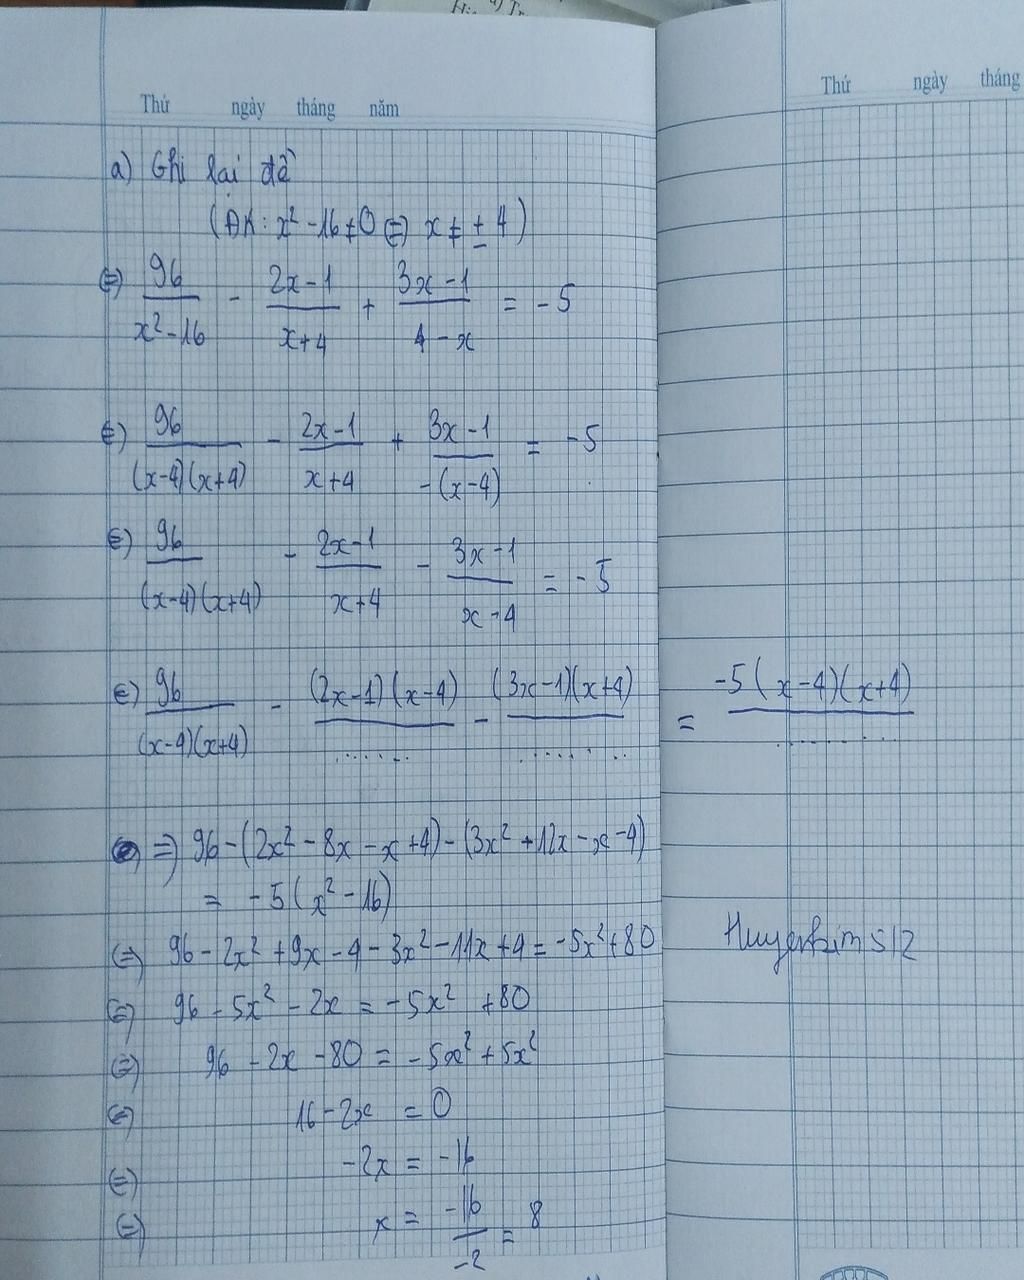 Thứ ngày tháng năm
Thứ ngày tháng
a) Ghi lại đề
(ĐK: x² - 16 ≠ 0 ⇔ x ≠ ± 4)
⇔ 96/(x² - 16) - (2x - 1)/(x + 4) + (3x - 1)/(4 - x) = -5
⇔ 96/((x-4)(x+4)) - (2x - 1)/(x + 4) + (3x - 1)/(-(x - 4)) = -5
⇔ 96/((x-4)(x+4)) - (2x - 1)/(x + 4) - (3x - 1)/(x - 4) = -5
⇔ 96/((x-4)(x+4)) - (2x-1)(x-4)/...... - (3x-1)(x+4)/...... = -5(x-4)(x+4)/......
⇒ 96 - (2x² - 8x - x + 4) - (3x² + 12x - x - 4)
= -5(x² - 16)
⇔ 96 - 2x² + 9x - 4 - 3x² - 11x + 4 = -5x² + 80
⇔ 96 - 5x² - 2x = -5x² + 80
⇔ 96 - 2x - 80 = -5x² + 5x²
⇔ 16 - 2x = 0
⇔ -2x = -16
⇔ x = -16/-2 = 8